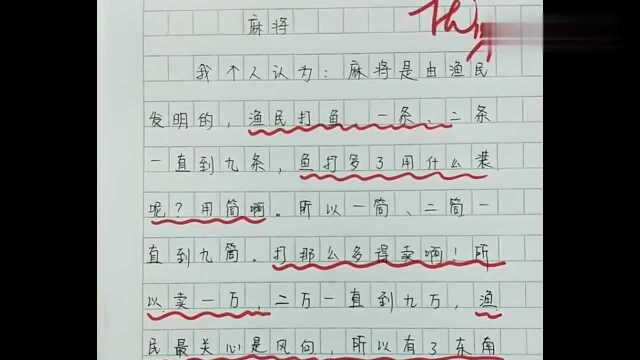 麻将
我个人认为：麻将是由渔民
发明的，渔民打鱼，一条、二条
一直到九条，鱼打多了用什么装
呢？用筒啊。所以一筒、二筒一
直到九筒。打那么多得卖啊！所
以卖一万，二万一直到九万，渔
民最关心是风向，所以有了东南